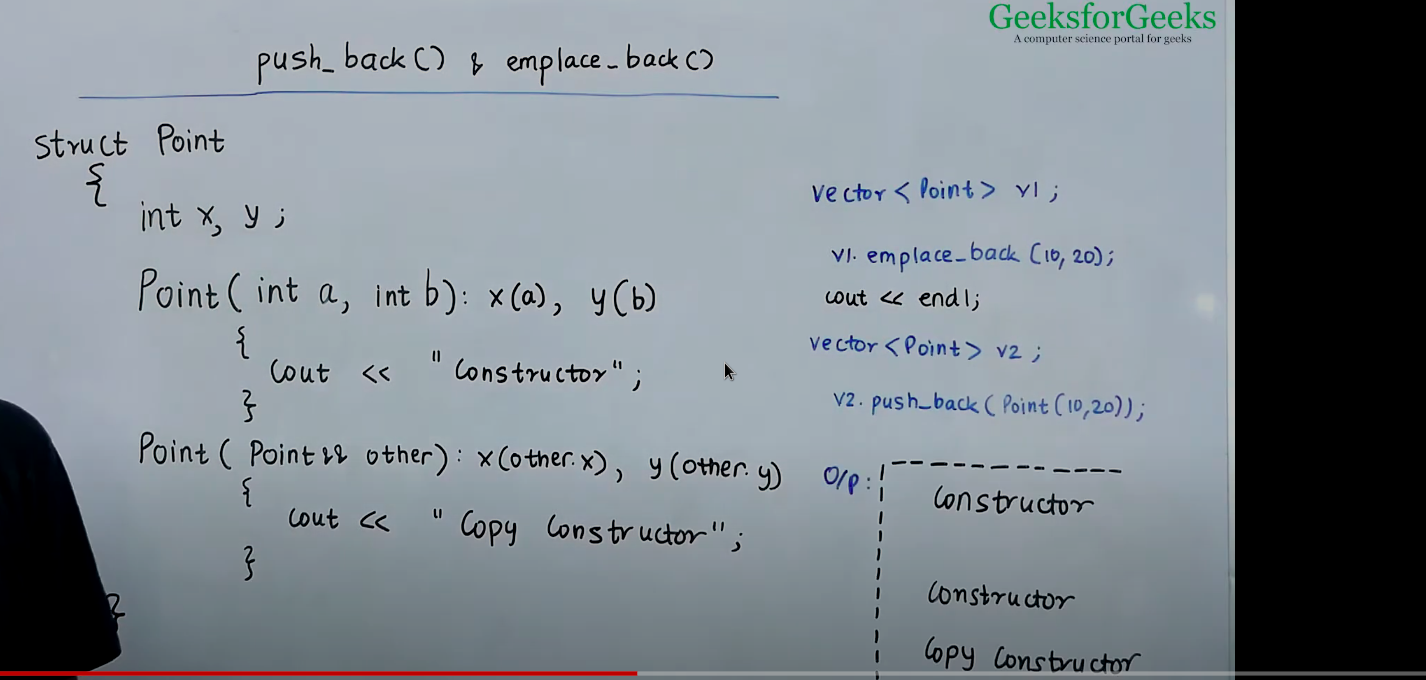 GeeksforGeeks
A computer science portal for geeks
push_back() & emplace_back()
struct Point
{
int x, y ;
Point( int a, int b): x(a), y(b)
{
cout << "Constructor";
}
Point( Point&& other): x(other.x), y(other.y)
{
cout << "Copy Constructor";
}
}
vector<Point> v1 ;
v1. emplace_back (10, 20);
cout << endl;
vector<Point> v2 ;
v2. push_back( Point(10,20));
O/P :
Constructor
Constructor
Copy Constructor